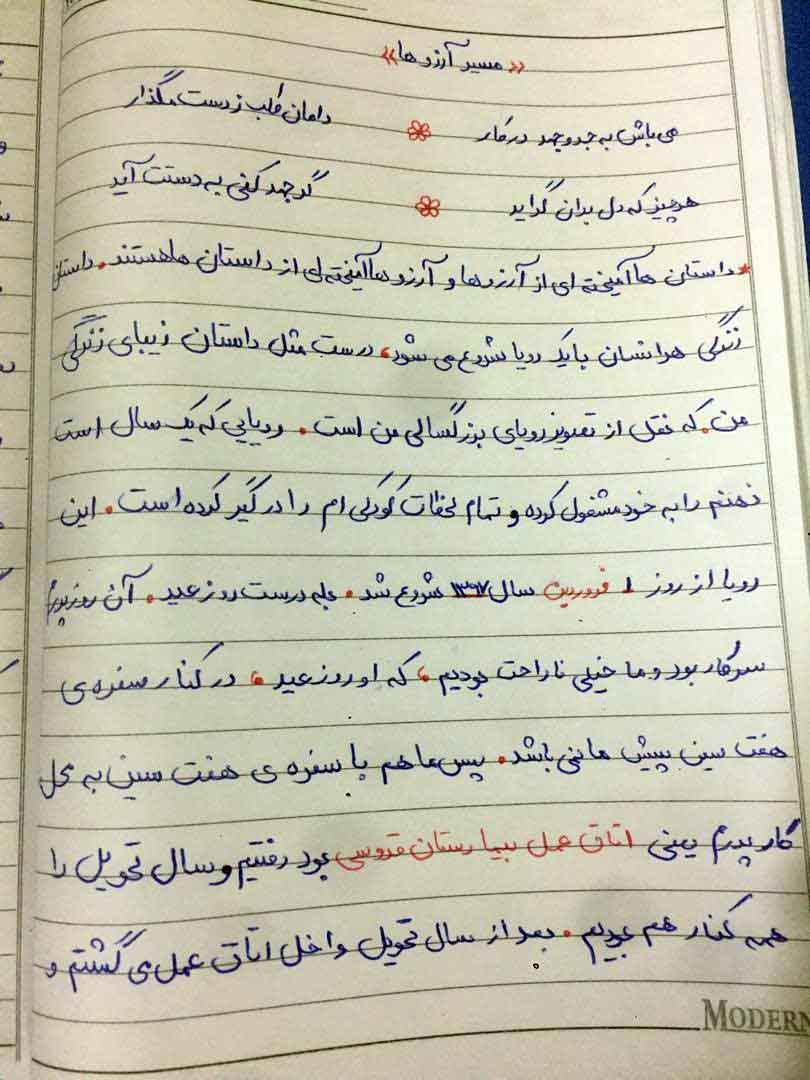 «مسیر آرزوها»
می باش به جد و جهد در کار ❀ دامان طلب ز دست مگذار
هر چیز که دل بدان گراید ❀ گر جهد کنی به دستت آید
* داستان ها آمیخته ای از آرزوها و آرزوها آمیخته ای از داستان ها هستند. داستان
زندگی هر انسان با یک رویا شروع می شود، درست مثل داستان زیبای زندگی
من. که نقل از تصویر رویای بزرگسالی من است. رویایی که یک سال است
ذهنم را به خود مشغول کرده و تمام لحظات کودکی ام را درگیر کرده است. این
رویا از روز ۱ فروردین سال ۱۳۹۷ شروع شد. بله درست روز عید. آن روز پدرم
سر کار بود و ما خیلی ناراحت بودیم، که او روز عید، در کنار سفره ی
هفت سین پیش ما نمی باشد. پس ما هم با سفره ی هفت سین به محل
کار پدرم یعنی اتاق عمل بیمارستان قدوسی بود رفتیم و سال تحویل را
همه کنار هم بودیم. بعد از سال تحویل داخل اتاق عمل می گشتم و
MODERN